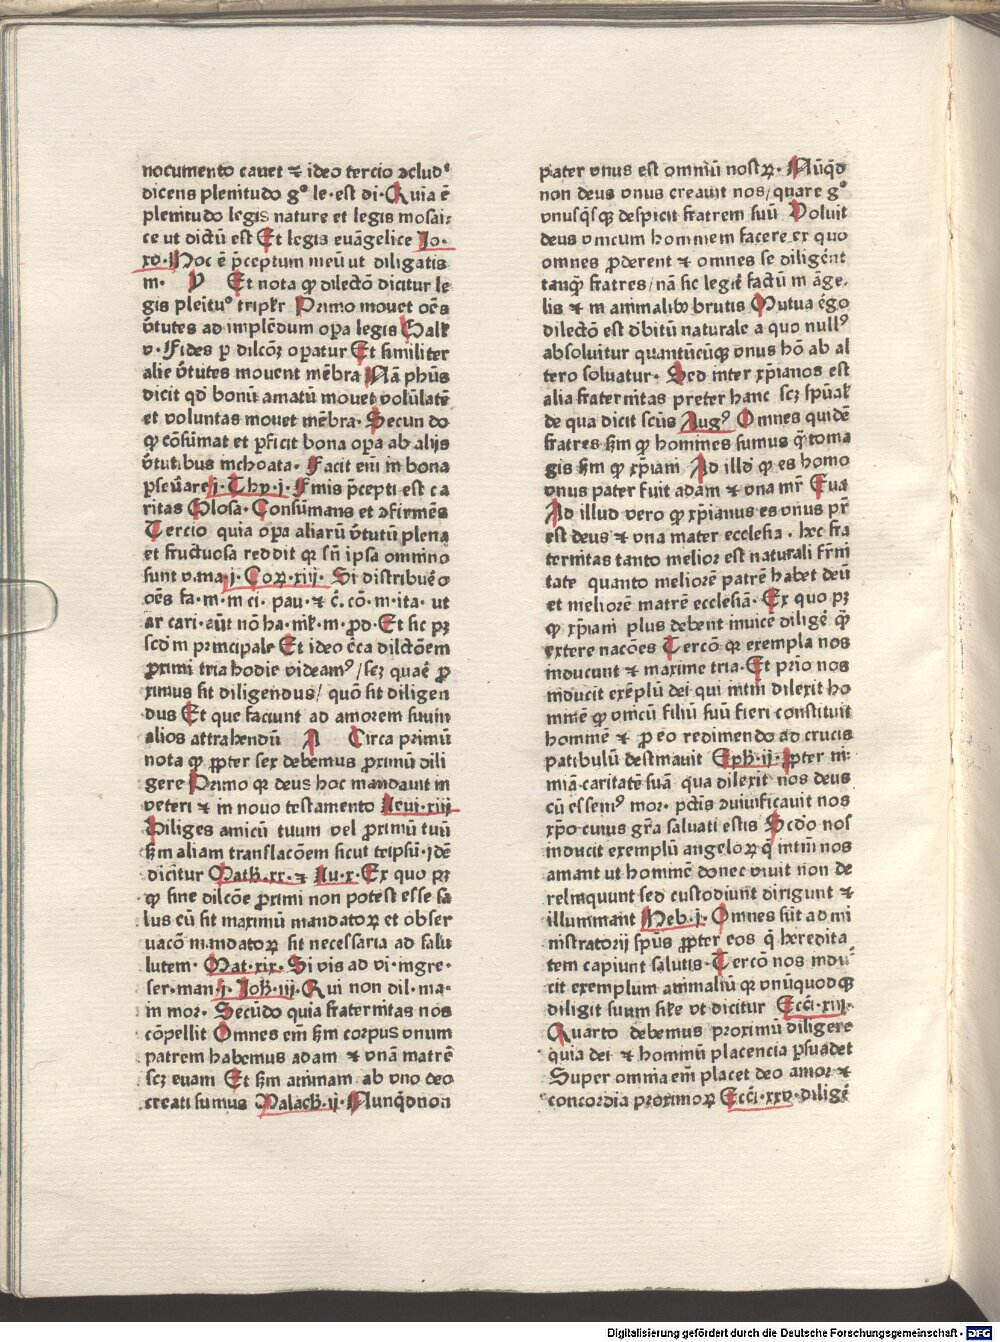 nocumento cauet ⁊ ideo tercio ↄcludᵗ
dicens plenitudo gᵒ le·est di· Quia ē
plenitudo legis nature et legis mosai⸗
ce ut dictū est Et legis euāgelice Jo·
xv· Hoc ē p̄ceptum meū ut diligatis
in· V Et nota ꝙ dilectō dicitur le
gis pleītuᵒ triplr Primo mouet oēs
v̄tutes ad implēdum oꝑa legis Gall
v· Fides ꝑ dilcōꝫ oꝑatur Et similiter
alie v̄tutes mouent mēbra Nā phūs
dicit qd̄ bonū amatū mouet volūtatē
et voluntas mouet mēbra· Secundo
ꝙ cōsumat et ꝑficit bona oꝑa ab alijs
v̄tutibus inchoata· Facit em̄ in bona
ꝑseūare j·Thy·j· Finis p̄cepti est ca
ritas Glosa· Consūmans et ↄfirmēs
Tercio quia oꝑa aliarū v̄tutū plena
et fructuosa reddit qꝛ sn̄ ipsa omnino
sunt vana j·Coꝝ·xiij· Si distribuēo
oēs fa·m·m ci· pau·⁊ c̄·cō·m·ita· ut
ar cari·aūt nō ha·nil·m·ꝓd·Et sic pꝫ
scd̄m principale Et ideo c̄ca dilctōem
ꝓximi tria hodie videamꝰ/scꝫ quaē ꝓ
ximus sit diligendus/ quō sit diligen
dus Et que faciunt ad amorem suum
alios attrahendū A Circa primū
nota ꝙ ꝓpter sex debemus ꝓximū dili
gere Primo qꝛ deus hoc mandauit in
veteri ⁊ in nouo testamento Leui·xiij
Diliges amicū tuum vel ꝓximū tuū
ẜm aliam translacōem sicut teipsū·jdē
dicitur Math·xx·⁊ Lu·x·Ex quo pꝫ
ꝙ sine dilcōe ꝓximi non potest esse sa
lus cū sit maximū mandatoꝝ et obser
uacō mandatoꝝ sit necessaria ad salu
lutem· Mat·xix· Si vis ad vi·ingre·
ser·man·j·Joh·iij· Qui non dil·ma·
in mor· Secūdo quia fraternitas nos
cōpellit Omnes em̄ ẜm corpus vnum
patrem habemus adam ⁊ vnā matrē
scꝫ euam Et ẜm animam ab vno deo
creati sumus Malach·ij· Nunqd̄ non
pater vnus est omniū nostꝝ· Nūqd̄
non deus vnus creauit nos/quare gᵒ
vnusqͥsqꝫ despicit fratrem suū Voluit
deus vnicum hominem facere ex quo
omnes ꝓderent ⁊ omnes se diligēnt
tanqꝫ fratres/nā sic legiť factū in āge·
lis ⁊ in animalibꝫ brutis Mutua ēgo
dilectō est d̄bitū naturale a quo nullꝰ
absoluitur quantūcūqꝫ vnus hō ab al
tero soluatur· Sed inter xp̄ianos est
alia fraternitas preter hanc scꝫ spūal
de qua dicit scūs Augꝰ Omnes quidē
fratres ẜm ꝙ homines sumus qͥto ma
gis ẜm ꝙ xp̄iani Ad illd̄ ꝙ es homo
vnus pater fuit adam ⁊ vna mr̄ Eua
Ad illud vero ꝙ xp̄ianus es vnus pr̄
est deus ⁊ vna mater ecclesia· hec fra
ternitas tanto melior est naturali fr̄ni
tate quanto meliorē patrē habet deū
et meliorē matrē ecclesiā· Ex quo pꝫ
ꝙ xp̄iani plus debent inuicē diligē ꝙ̄
extere nacōes Tercō qꝛ exempla nos
inducunt ⁊ maxime tria· Et prīo nos
inducit exēplū dei qui intm̄ dilexit ho
minē ꝙ vnicū filiū suū fieri constituit
hominē ⁊ ꝓ eo redimendo ad crucis
patibulū destinauit Eph·ij· Ꝓpter ni·
miā caritatē suā qua dilexit nos deus
cū essemꝰ mor· pctīs ↄuiuificauit nos
xp̄o cuius gr̄a saluati estis Scd̄o nos
inducit exemplū angeloꝝ qͥ intm̄ nos
amant ut hominē donec viuit non de
relinquunt sed custodiunt dirigunt ⁊
illuminant Heb·j· Omnes sūt admi
nistratorij spūs ꝓpter eos qͥ heredita
tem capiunt salutis· Tercō nos indu
cit exemplum animaliū qꝛ vnūquodqꝫ
diligit suum sile ut dicitur Ecci·xiij·
Quarto debemus proximū diligere
quia dei ⁊ hominū placencia ꝑsuadet
Super omnia em̄ placet deo amor ⁊
concordia proximoꝝ Ecci·xxv· diligē
Digitalisierung gefördert durch die Deutsche Forschungsgemeinschaft - DFG